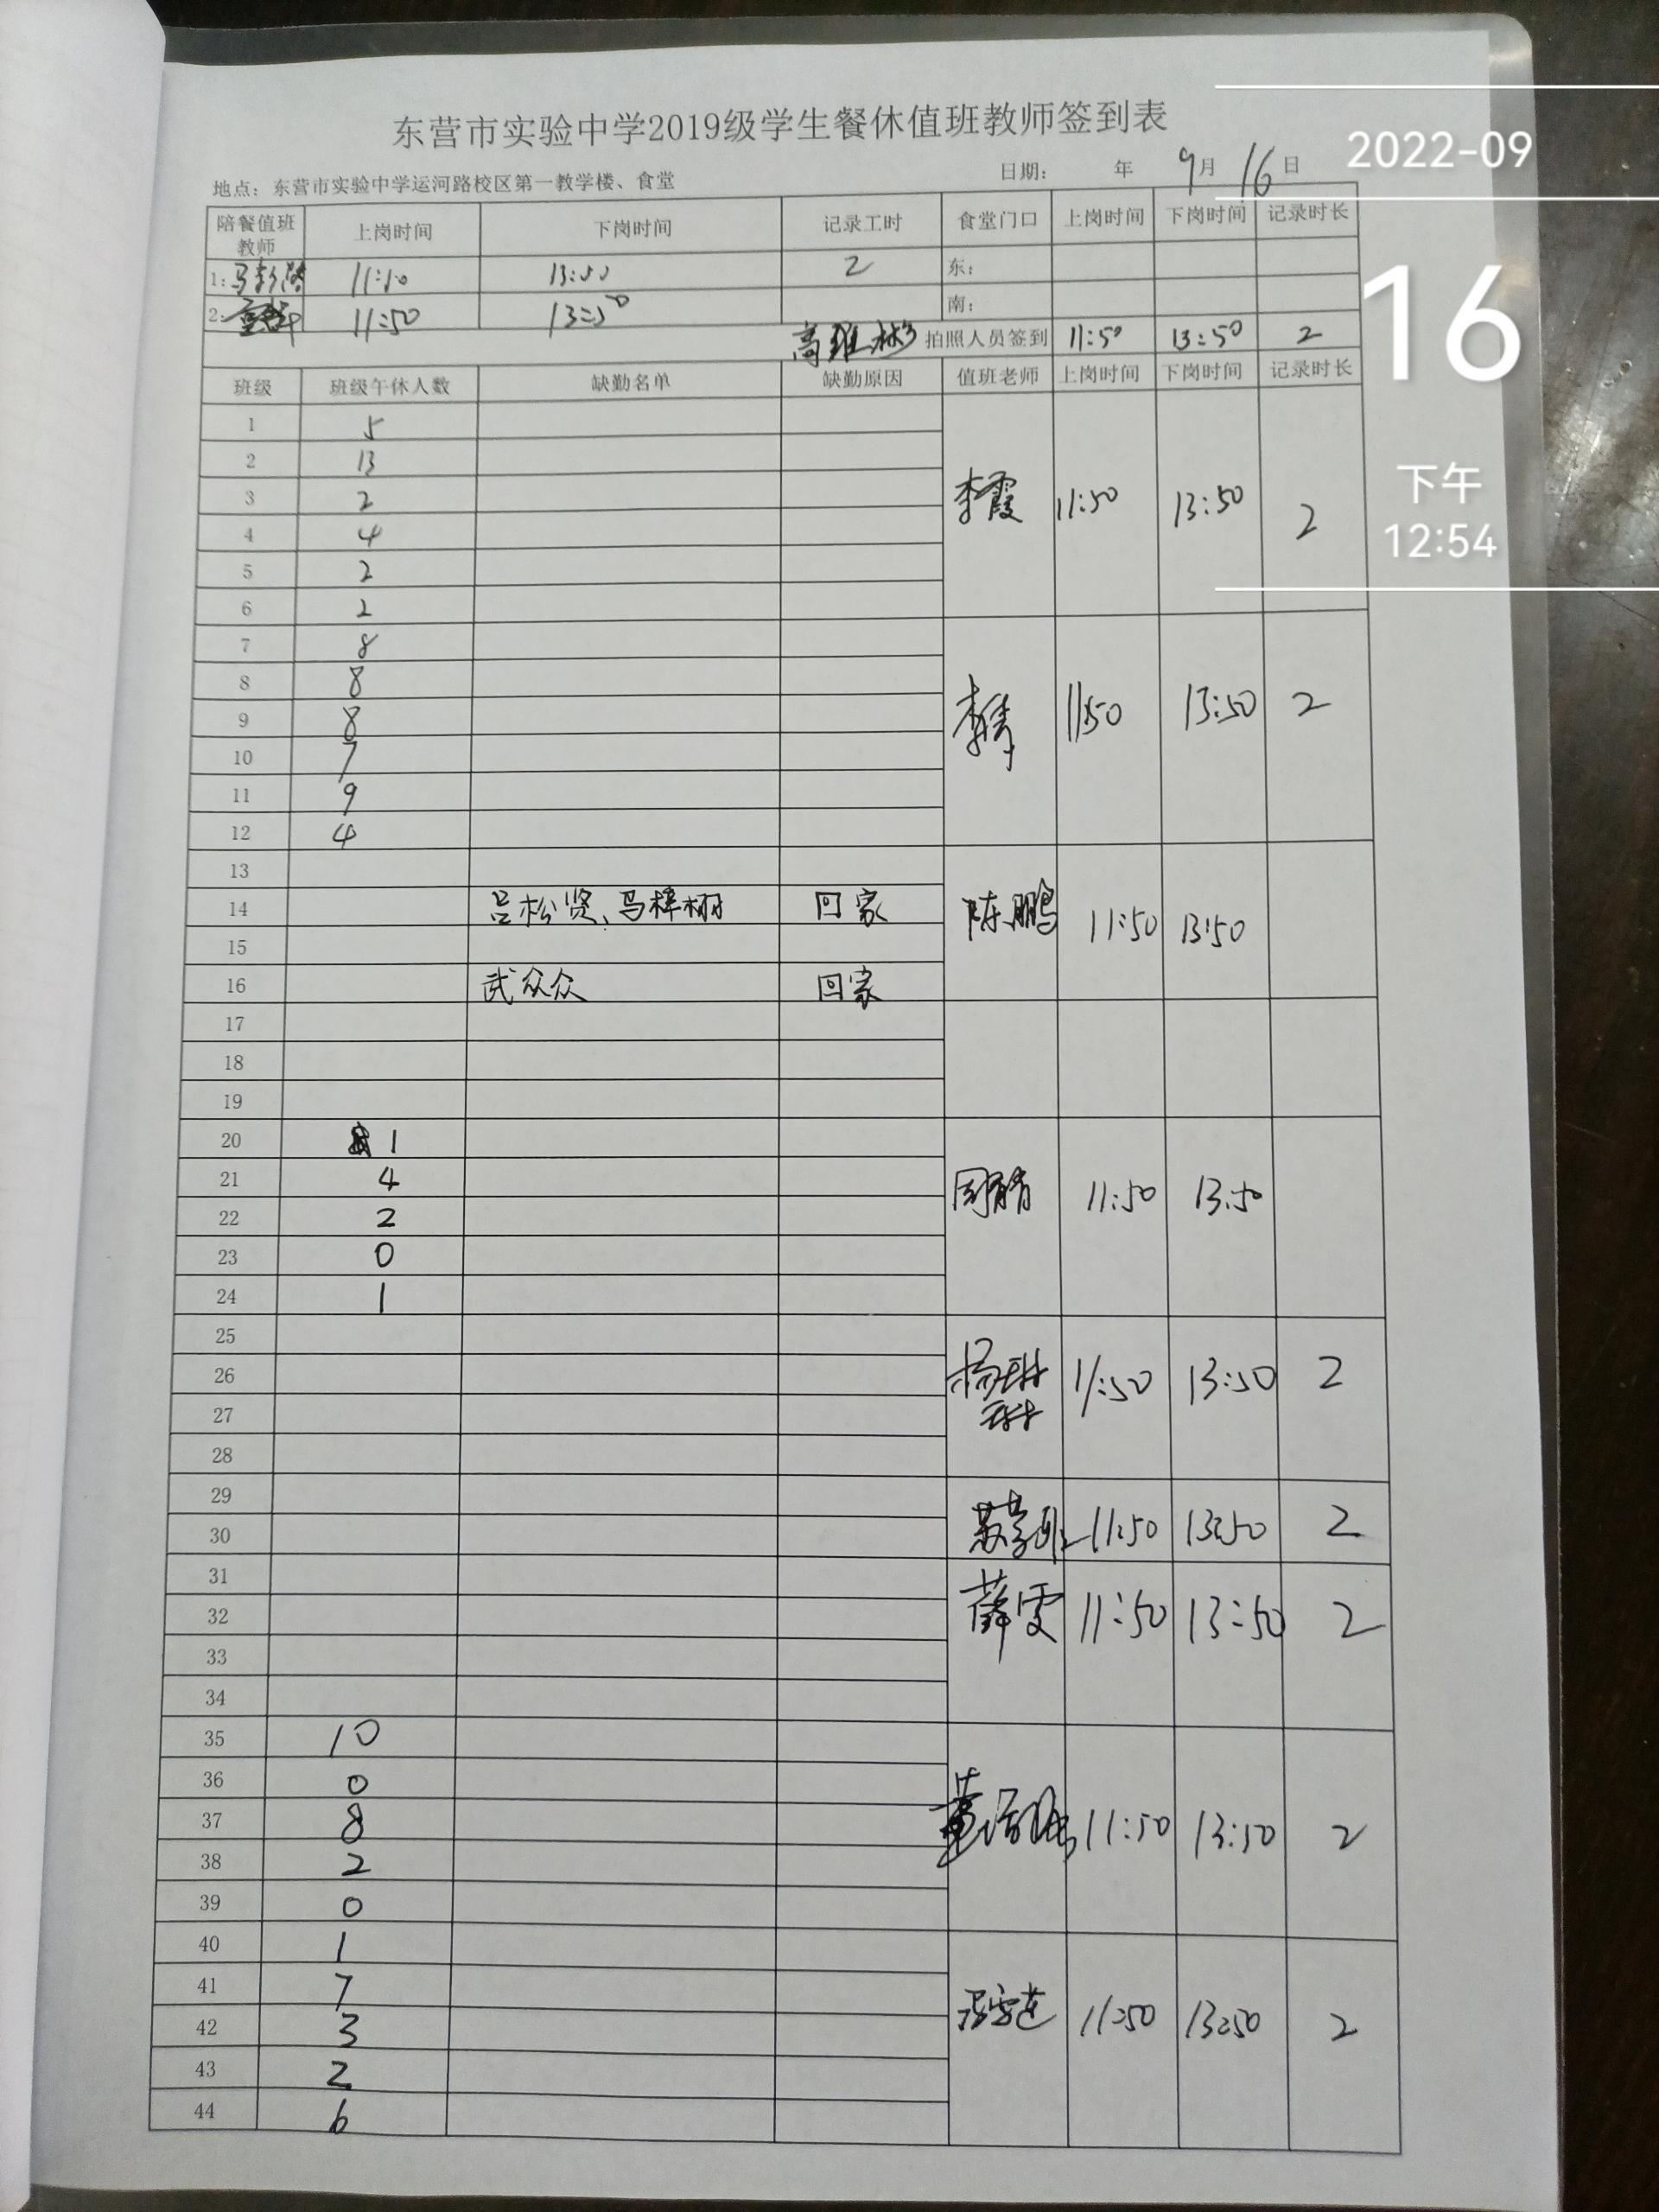 东营市实验中学2019级学生餐休值班教师签到表
2022-09
16
下午
12:54
地点：东营市实验中学运河路校区第一教学楼、食堂 日期： 年 9月 16日
陪餐值班教师 上岗时间 下岗时间 记录工时 食堂门口 上岗时间 下岗时间 记录时长
1: 13:50 2 东：
2: 11:50 13:50 南：
拍照人员签到 11:50 13:50 2
班级 班级午休人数 缺勤名单 缺勤原因 值班老师 上岗时间 下岗时间 记录时长
1 5
2 13
3 2 李霞 11:50 13:50 2
4 4
5 2
6 2
7 8
8 8
9 8 11:50 13:50 2
10 7
11 9
12 4
13
14 吕松贤、马梓栩 回家 陈鹏 11:50 13:50
15
16 武众众 回家
17
18
19
20 1
21 4
22 2 11:50 13:50
23 0
24 1
25
26 杨琳琳 11:50 13:50 2
27
28
29
30 11:50 13:50 2
31
32 薛雯 11:50 13:50 2
33
34
35 10
36 0
37 8 11:50 13:50 2
38 2
39 0
40 1
41 7
42 3 11:50 13:50 2
43 2
44 6